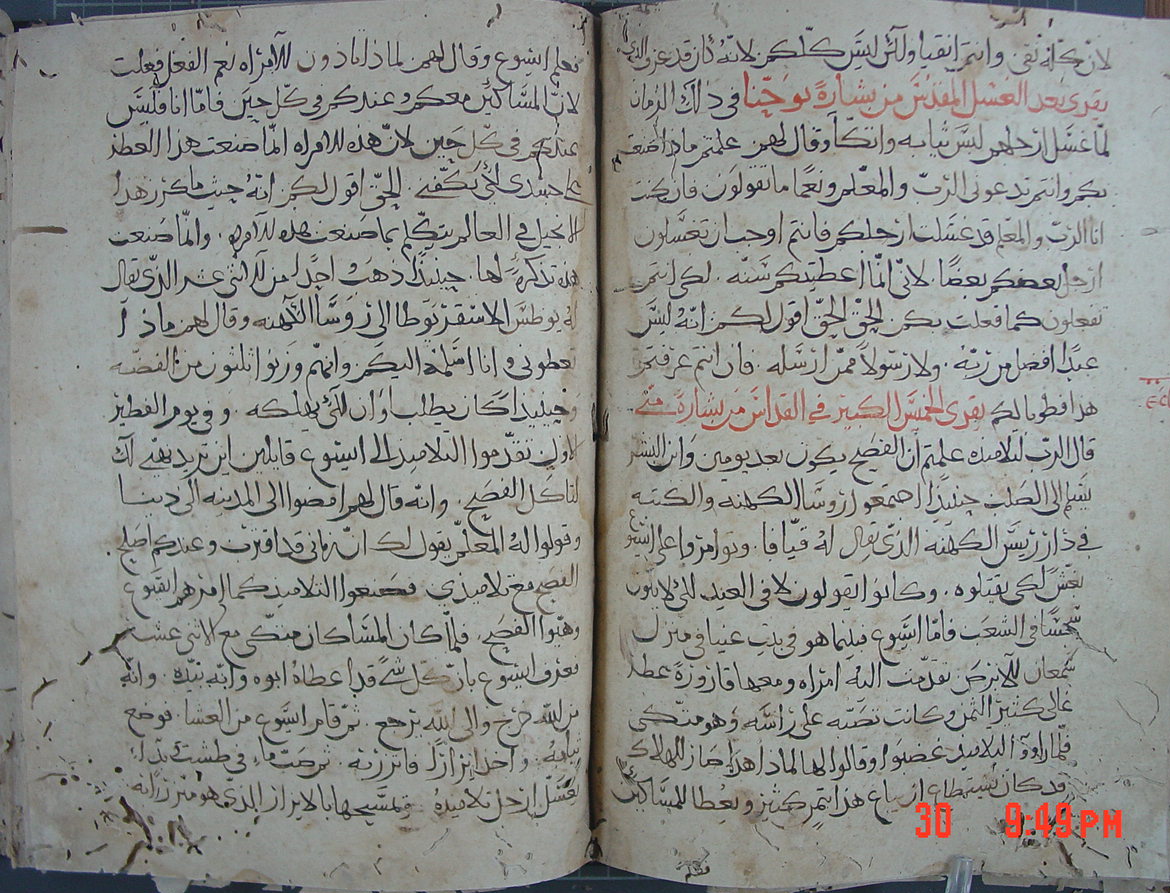 لان كله نقي وانتم انقيا ولكن ليس كلكم لانه كان قد عرف الذي
يقرى بعد الغسل المقدس من بشارة يوحنا في ذلك الزمان
لما غسل ارجلهم لبس ثيابه واتكا وقال لهم علمتم ماذا صنعت
بكم وانتم تدعوني الرب والمعلم ونعما ما تقولون فان كنت
انا الرب والمعلم قد غسلت ارجلكم فانتم اوجب ان تغسلون
ارجل بعضكم بعضا. لاني انما اعطيتكم سنه. لكي انتم
تفعلون كما فعلت بكم الحق الحق اقول لكم انه ليس
عبدا افضل من ربه. ولا رسولا ممن ارسله. فان انتم عرفتم
هذا فطوبا لكم يقرى الخميس الكبير في القداس من بشارة متي
قال الرب لتلاميذه علمتم ان الفصح يكون بعد يومين وابن البشر
يسلم الى الصلب حينيذا اجتمعوا روسا الكهنه والكتبه
في دار رييس الكهنه الذي يقال له قيافا. وتوامروا على ايسوع
بغش لكي يقتلوه. وكانوا يقولون لا في العيد. لئلا يكون
سجسا في الشعب فاما ايسوع فبينما هو في بيت عنيا في منزل
سمعان الابرص تقدمت اليه امراه ومعها قارورة عطر
غالى كثير الثمن وكانت تصبه على راسه وهو متكي
فلما راوه التلاميذ غضبوا وقالوا لها لماذا هذا صار للهلاك
وقد كان يستطاع ان يباع هذا بثمن كثير ويعطا للمساكين
فعلم
فعلم ايسوع وقال لهم لماذا تادون للامراه نعم الفعل فعلت
لان المساكين معكم وعندكم في كل حين فاما انا فليس
عندكم في كل حين لان هذه للامراه انما صنعت هذا العطر
على جسدى لكي تكفني. الحق اقول لكم انه حيث ما كرز هذا
الانجيل في العالم يتكلم بما صنعت هذه للامراه. وانما صنعت
هذه تذكره لها. حينيذا ذهب احدا من الاثني عشر الذي يقال
له يوداس الاسقريوطا الى روسا الكهنه وقال لهم ماذا
تعطوني وانا اسلمه اليكم وانهم وزنوا ثلثون من الفضه
وحينيذا كان يطلب اوان لكي يهلكه. وفي يوم الفطير
الاول تقدموا التلاميذ الى ايسوع قايلين اين تريد نهيي لك
لتاكل الفصح. وانه قال لهم امضوا الى المدينه الى
وقولوا له المعلم يقول لك ان زماني قد اقترب وعندكم اصلح
الفصح مع تلاميذي. فصنعوا التلاميذ كما امرهم ايسوع
وهيوا الفصح. فلما كان المسا كان متكي مع الاثني عشر
فعرف ايسوع بان كل شي قد اعطاه ابوه وانه بيده. وانه
من الله خرج والى الله يرجع. ثم قام ايسوع من العشا. فوضع
ثيابه. واخذ ميزرا فاتزر به. ثم صب ما في طشت
يغسل ارجل تلاميذه. ويمسحها بالايزار الذي هو متزر به
30 9:49 PM